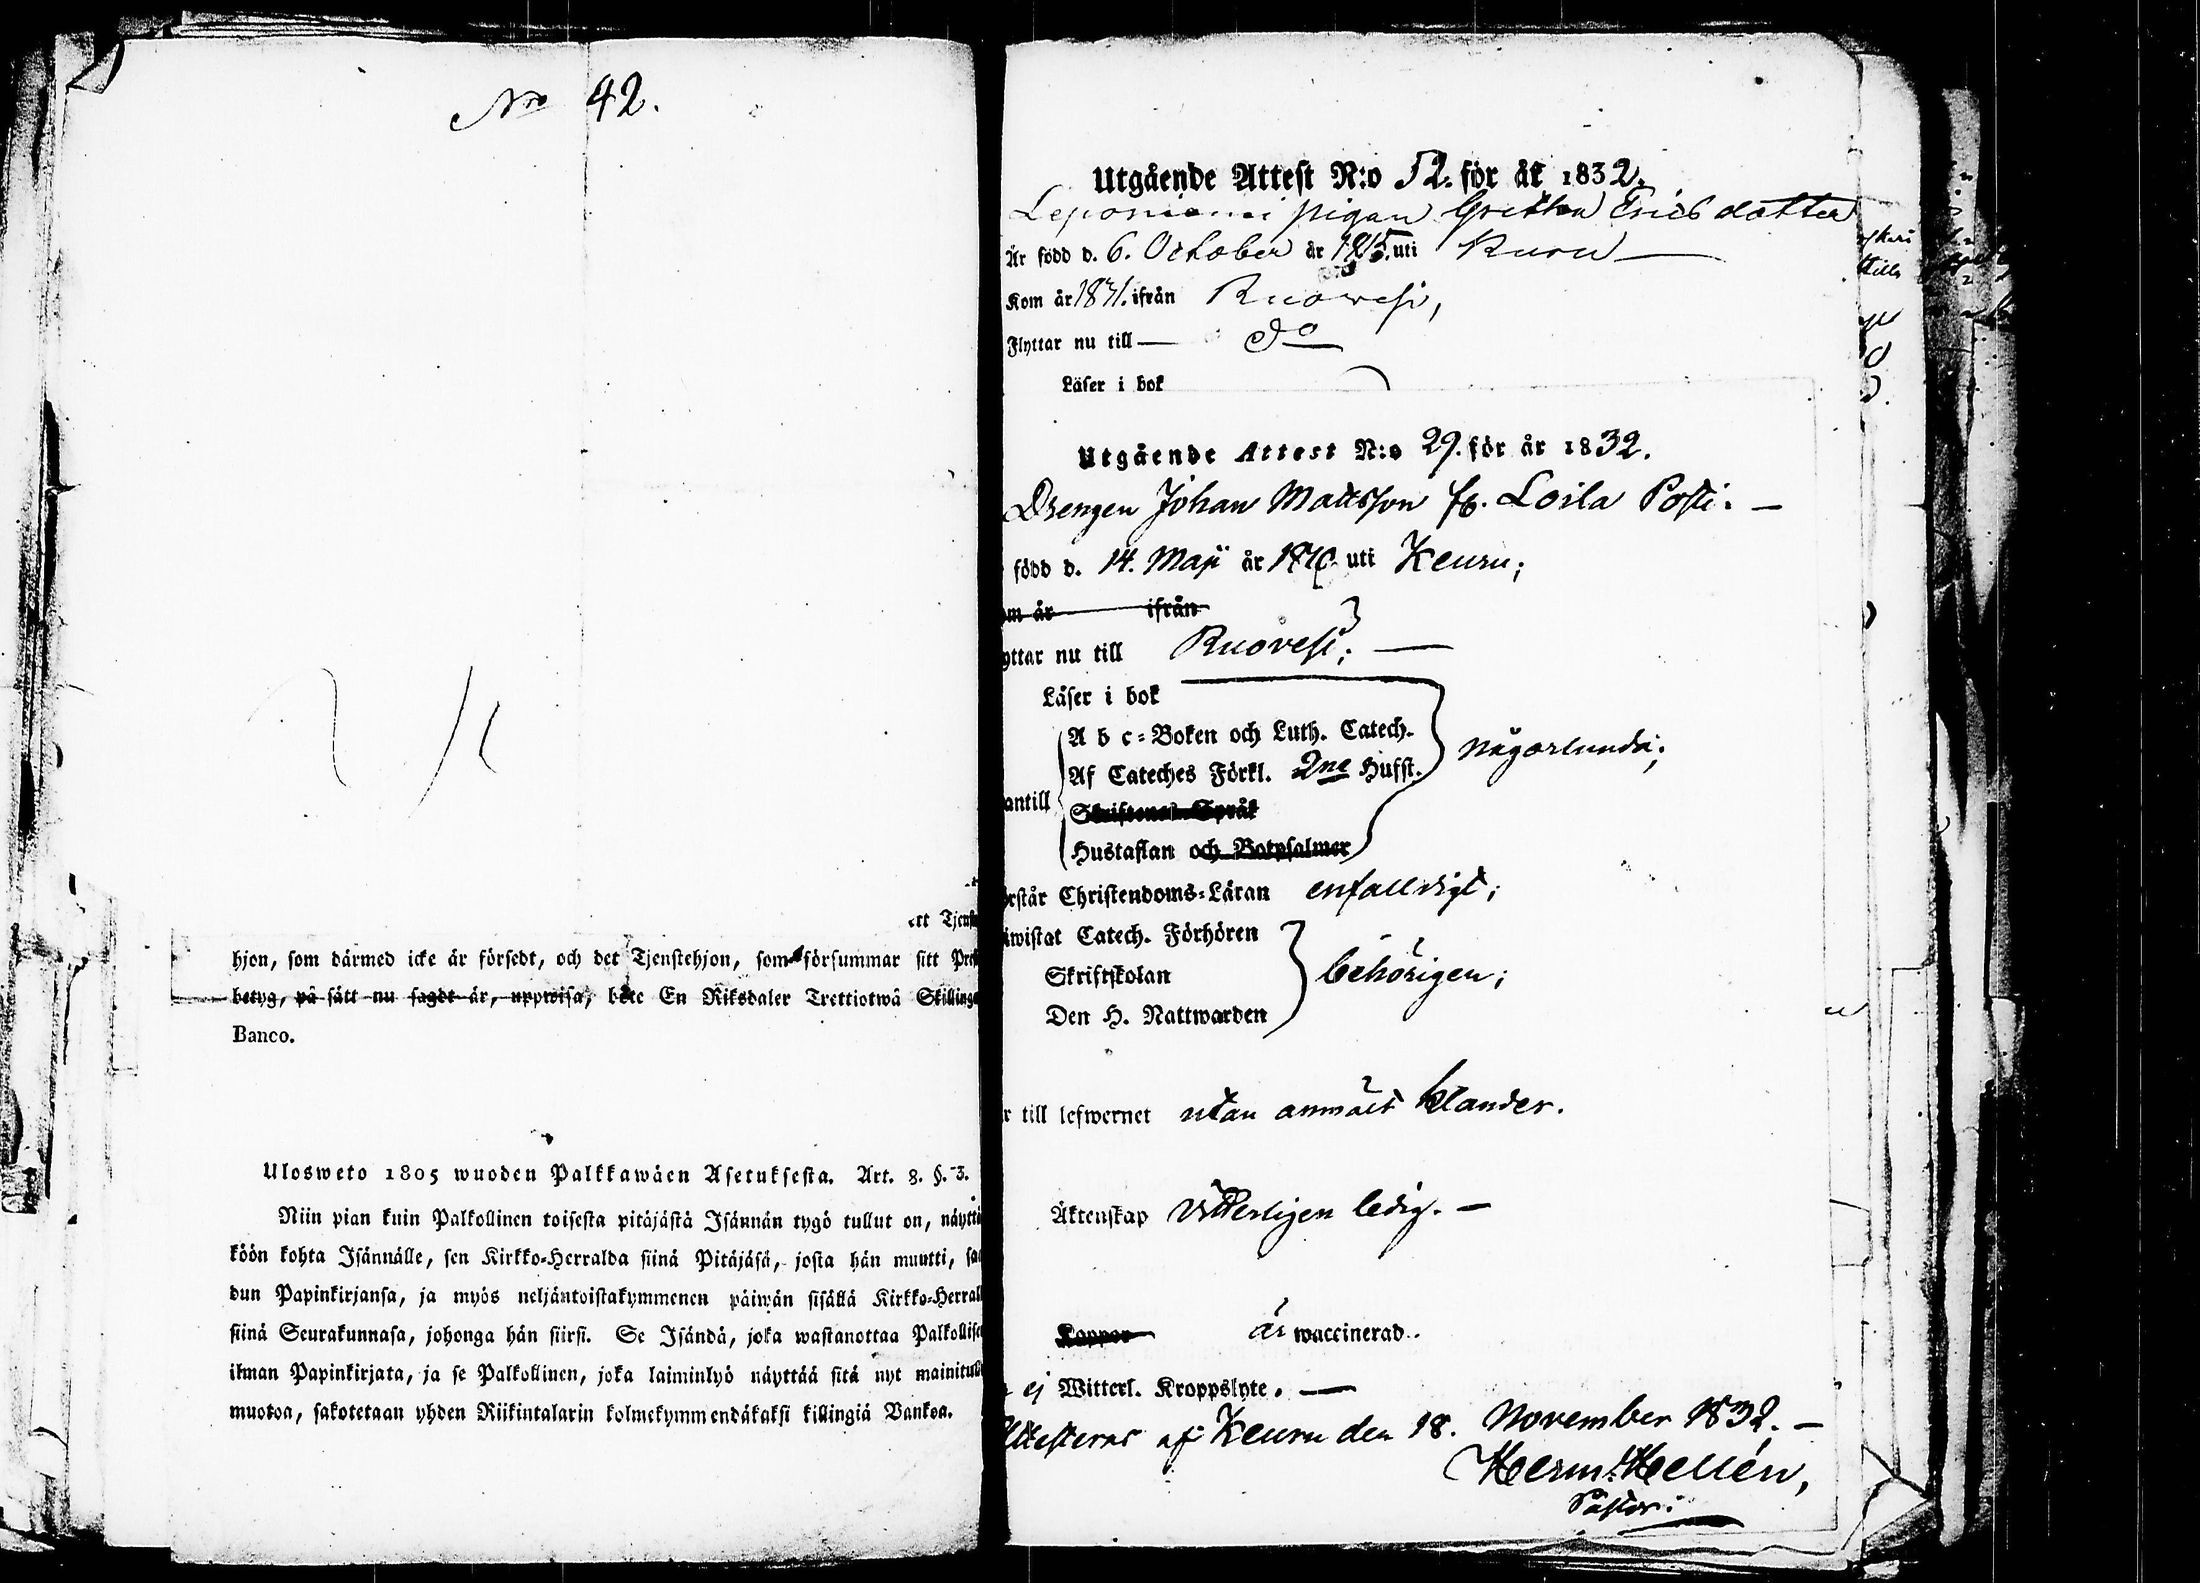 Nro 42.
ett Tjenste
hjon, som därmed icke är försedt, och det Tjenstehjon, som försummar sitt Prest
betyg, på sätt nu sagdt är, uppwisa, böte En Riksdaler Trettiotwå Skillinga
Banco.
Ulosweto 1805 wuoden Palkkawäen Asetuksesta. Art. 8. §. 3.
Niin pian kuin Palkollinen toisesta pitäjästä Isännän tygö tullut on, näyttä
köön kohta Isännälle, sen Kirkko-Herralda siinä Pitäjäsä, josta hän muutti, saa
dun Papinkirjansa, ja myös neljäntoistakymmenen päiwän sisällä Kirkko-Herrall
siinä Seurakunnasa, johonga hän siirsi. Se Isändä, joka wastanottaa Palkollise
ilman Papinkirjata, ja se Palkollinen, joka laiminlyö näyttää sitä nyt mainitulla
muotoa, sakotetaan yhden Riikintalarin kolmekymmendäkaksi killingiä Bankoa.
Utgående Attest N:o 52. för år 1832.
Leponiemi pigan Gretha Ericsdotter
Är född d. 6. October år 1815. uti Kuru
Kom år 1831. ifrån Ruowesi,
Flyttar nu till do
Läser i bok
Utgående Attest N:o 29. för år 1832.
Drengen Johan Mattsson fr. Loila Posti.
född d. 14. Maji år 1810 uti Keuru;
om år ifrån
yttar nu till Ruovesi;
Läser i bok
A b c-Boken och Luth. Catech.
Af Cateches Förkl. 2ne Hufst. någorlunda;
antill
Skriftenes Språk
Hustaflan och Botpsalmer
örstår Christendoms-Läran enfalldigt;
iwistat Catech. Förhören
Skriftskolan behörigen;
Den H. Nattwarden
r till lefwernet utan anmäldt klander.
Äktenskap Vitterligen ledig.
Koppor är waccinerad.
ej Witterl. Kroppslyte.
Attesteras af Keuru den 18. November 1832.
Herm. Hellén,
Pastor.